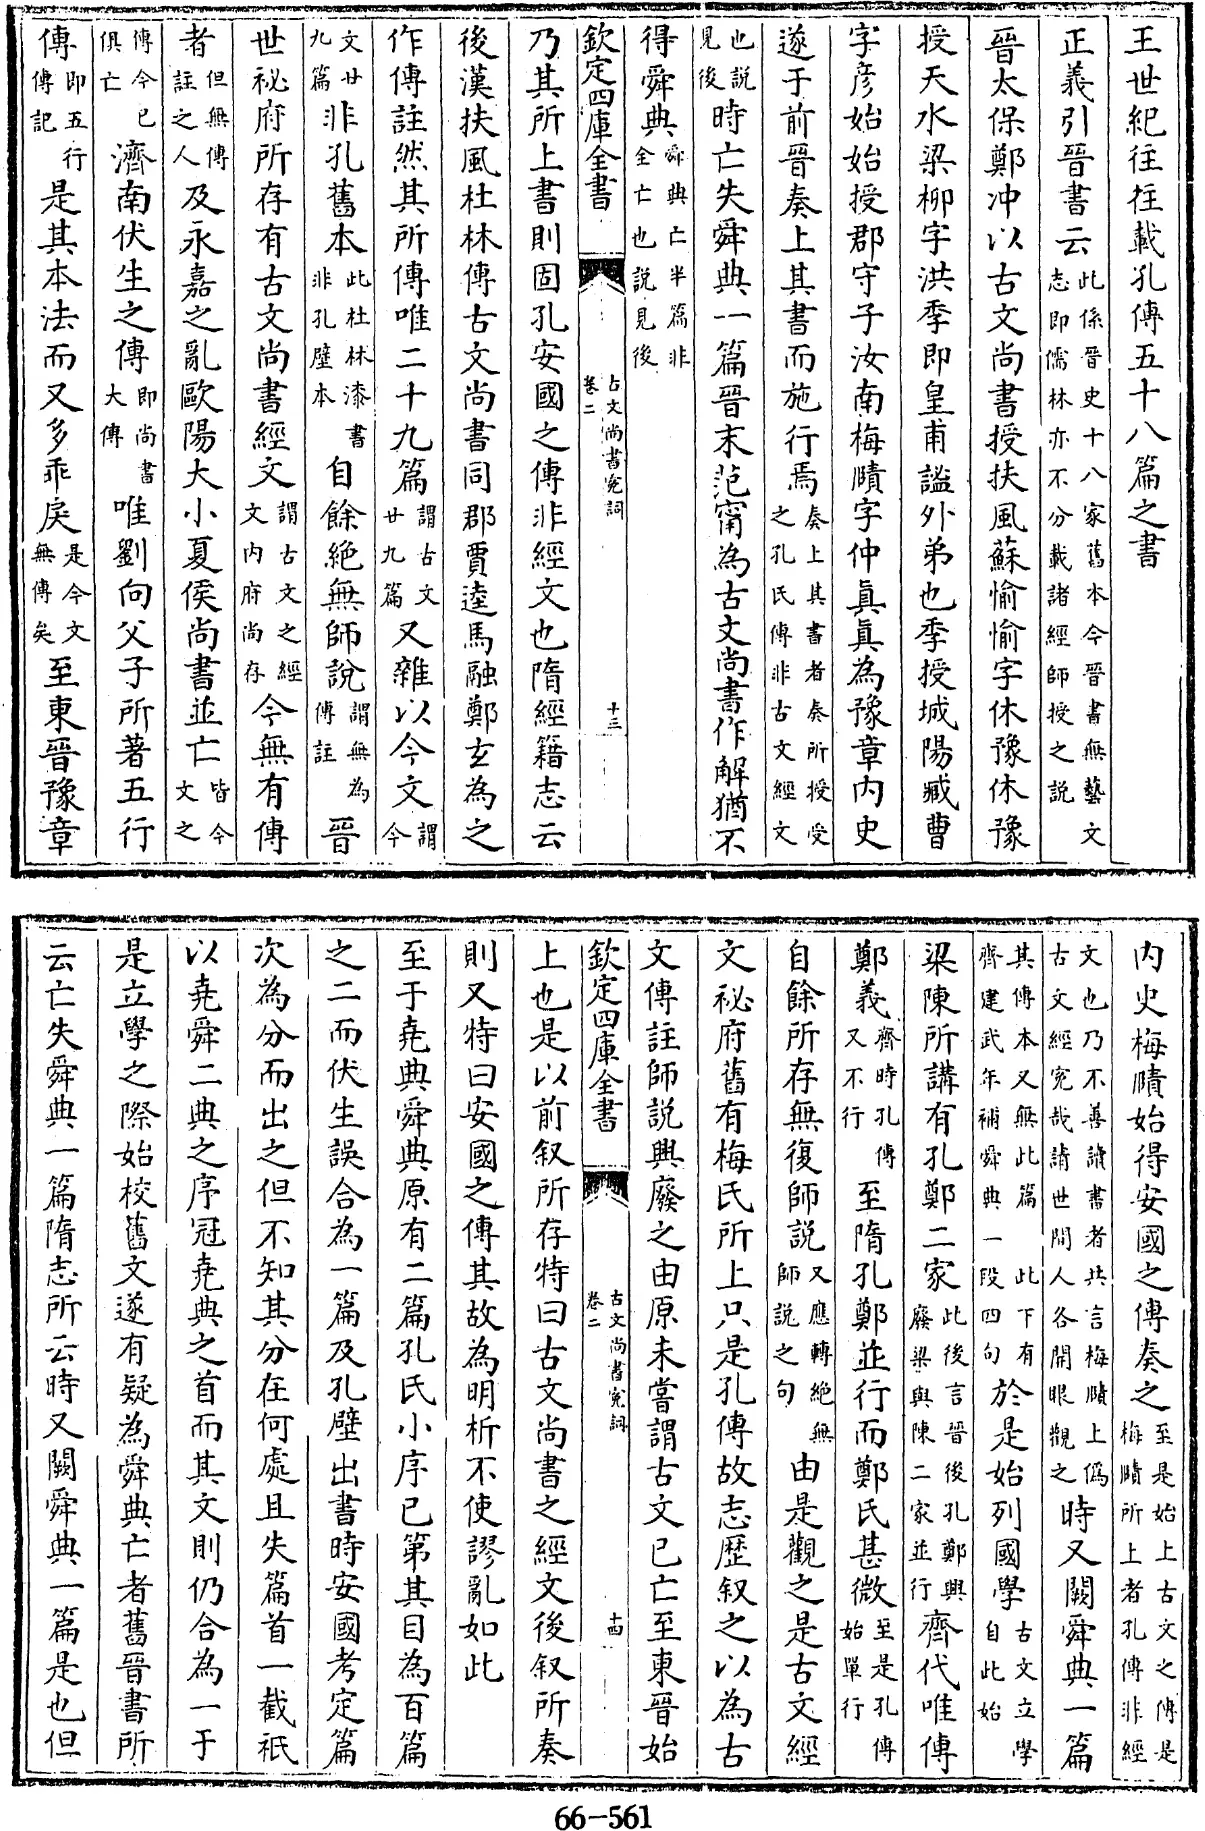 王世紀往往載孔傳五十八篇之書
正義引晉書云此係晉史十八家舊本今晉書無藝文志即儒林亦不分載諸經師授之説
晉太保鄭冲以古文尚書授扶風蘇愉愉字休豫休豫
授天水梁柳字洪季即皇甫謐外弟也季授城陽臧曹
字彦始始授郡守子汝南梅賾字仲真真為豫章内史
遂于前晉奏上其書而施行焉奏上其書者奏所授受之孔氏傳非古文經文
也説見後時亡失舜典一篇晉末范甯為古文尚書作解猶不
得舜典舜典亡半篇非全亡也説見後
欽定四庫全書 古文尚書寃詞 卷二 十三
乃其所上書則固孔安國之傳非經文也隋經籍志云
後漢扶風杜林傳古文尚書同郡賈逵馬融鄭玄為之
作傳註然其所傳唯二十九篇謂古文廿九篇又雜以今文謂今
文廿九篇非孔舊本此杜林漆書非孔壁本自餘絶無師説謂無為傳註晉
世祕府所存有古文尚書經文謂古文之經文内府尚存今無有傳
者但無傳註之人及永嘉之亂歐陽大小夏侯尚書並亡皆今文之
傳今已俱亡濟南伏生之傳即尚書大傳唯劉向父子所著五行
傳即五行傳記是其本法而又多乖戾是今文無傳矣至東晉豫章
内史梅賾始得安國之傳奏之至是始上古文之傳是梅賾所上者孔傳非經
文也乃不善讀書者共言梅賾上僞古文經寃哉請世間人各開眼觀之時又闕舜典一篇
其傳本又無此篇此下有齊建武年補舜典一段四句於是始列國學古文立學自此始
梁陳所講有孔鄭二家此後言晉後孔鄭興廢梁與陳二家並行齊代唯傳
鄭義齊時孔傳又不行至隋孔鄭並行而鄭氏甚微至是孔傳始單行
自餘所存無復師説又應轉絶無師説之句由是觀之是古文經
文祕府舊有梅氏所上只是孔傳故志歷叙之以為古
文傳註師説興廢之由原未嘗謂古文已亡至東晉始
欽定四庫全書 古文尚書寃詞 卷二 十四
上也是以前叙所存特曰古文尚書之經文後叙所奏
則又特曰安國之傳其故為明析不使謬亂如此
至于堯典舜典原有二篇孔氏小序已第其目為百篇
之二而伏生誤合為一篇及孔壁出書時安國考定篇
次為分而出之但不知其分在何處且失篇首一截祇
以堯舜二典之序冠堯典之首而其文則仍合為一于
是立學之際始校舊文遂有疑為舜典亡者舊晉書所
云亡失舜典一篇隋志所云時又闕舜典一篇是也但
66-561